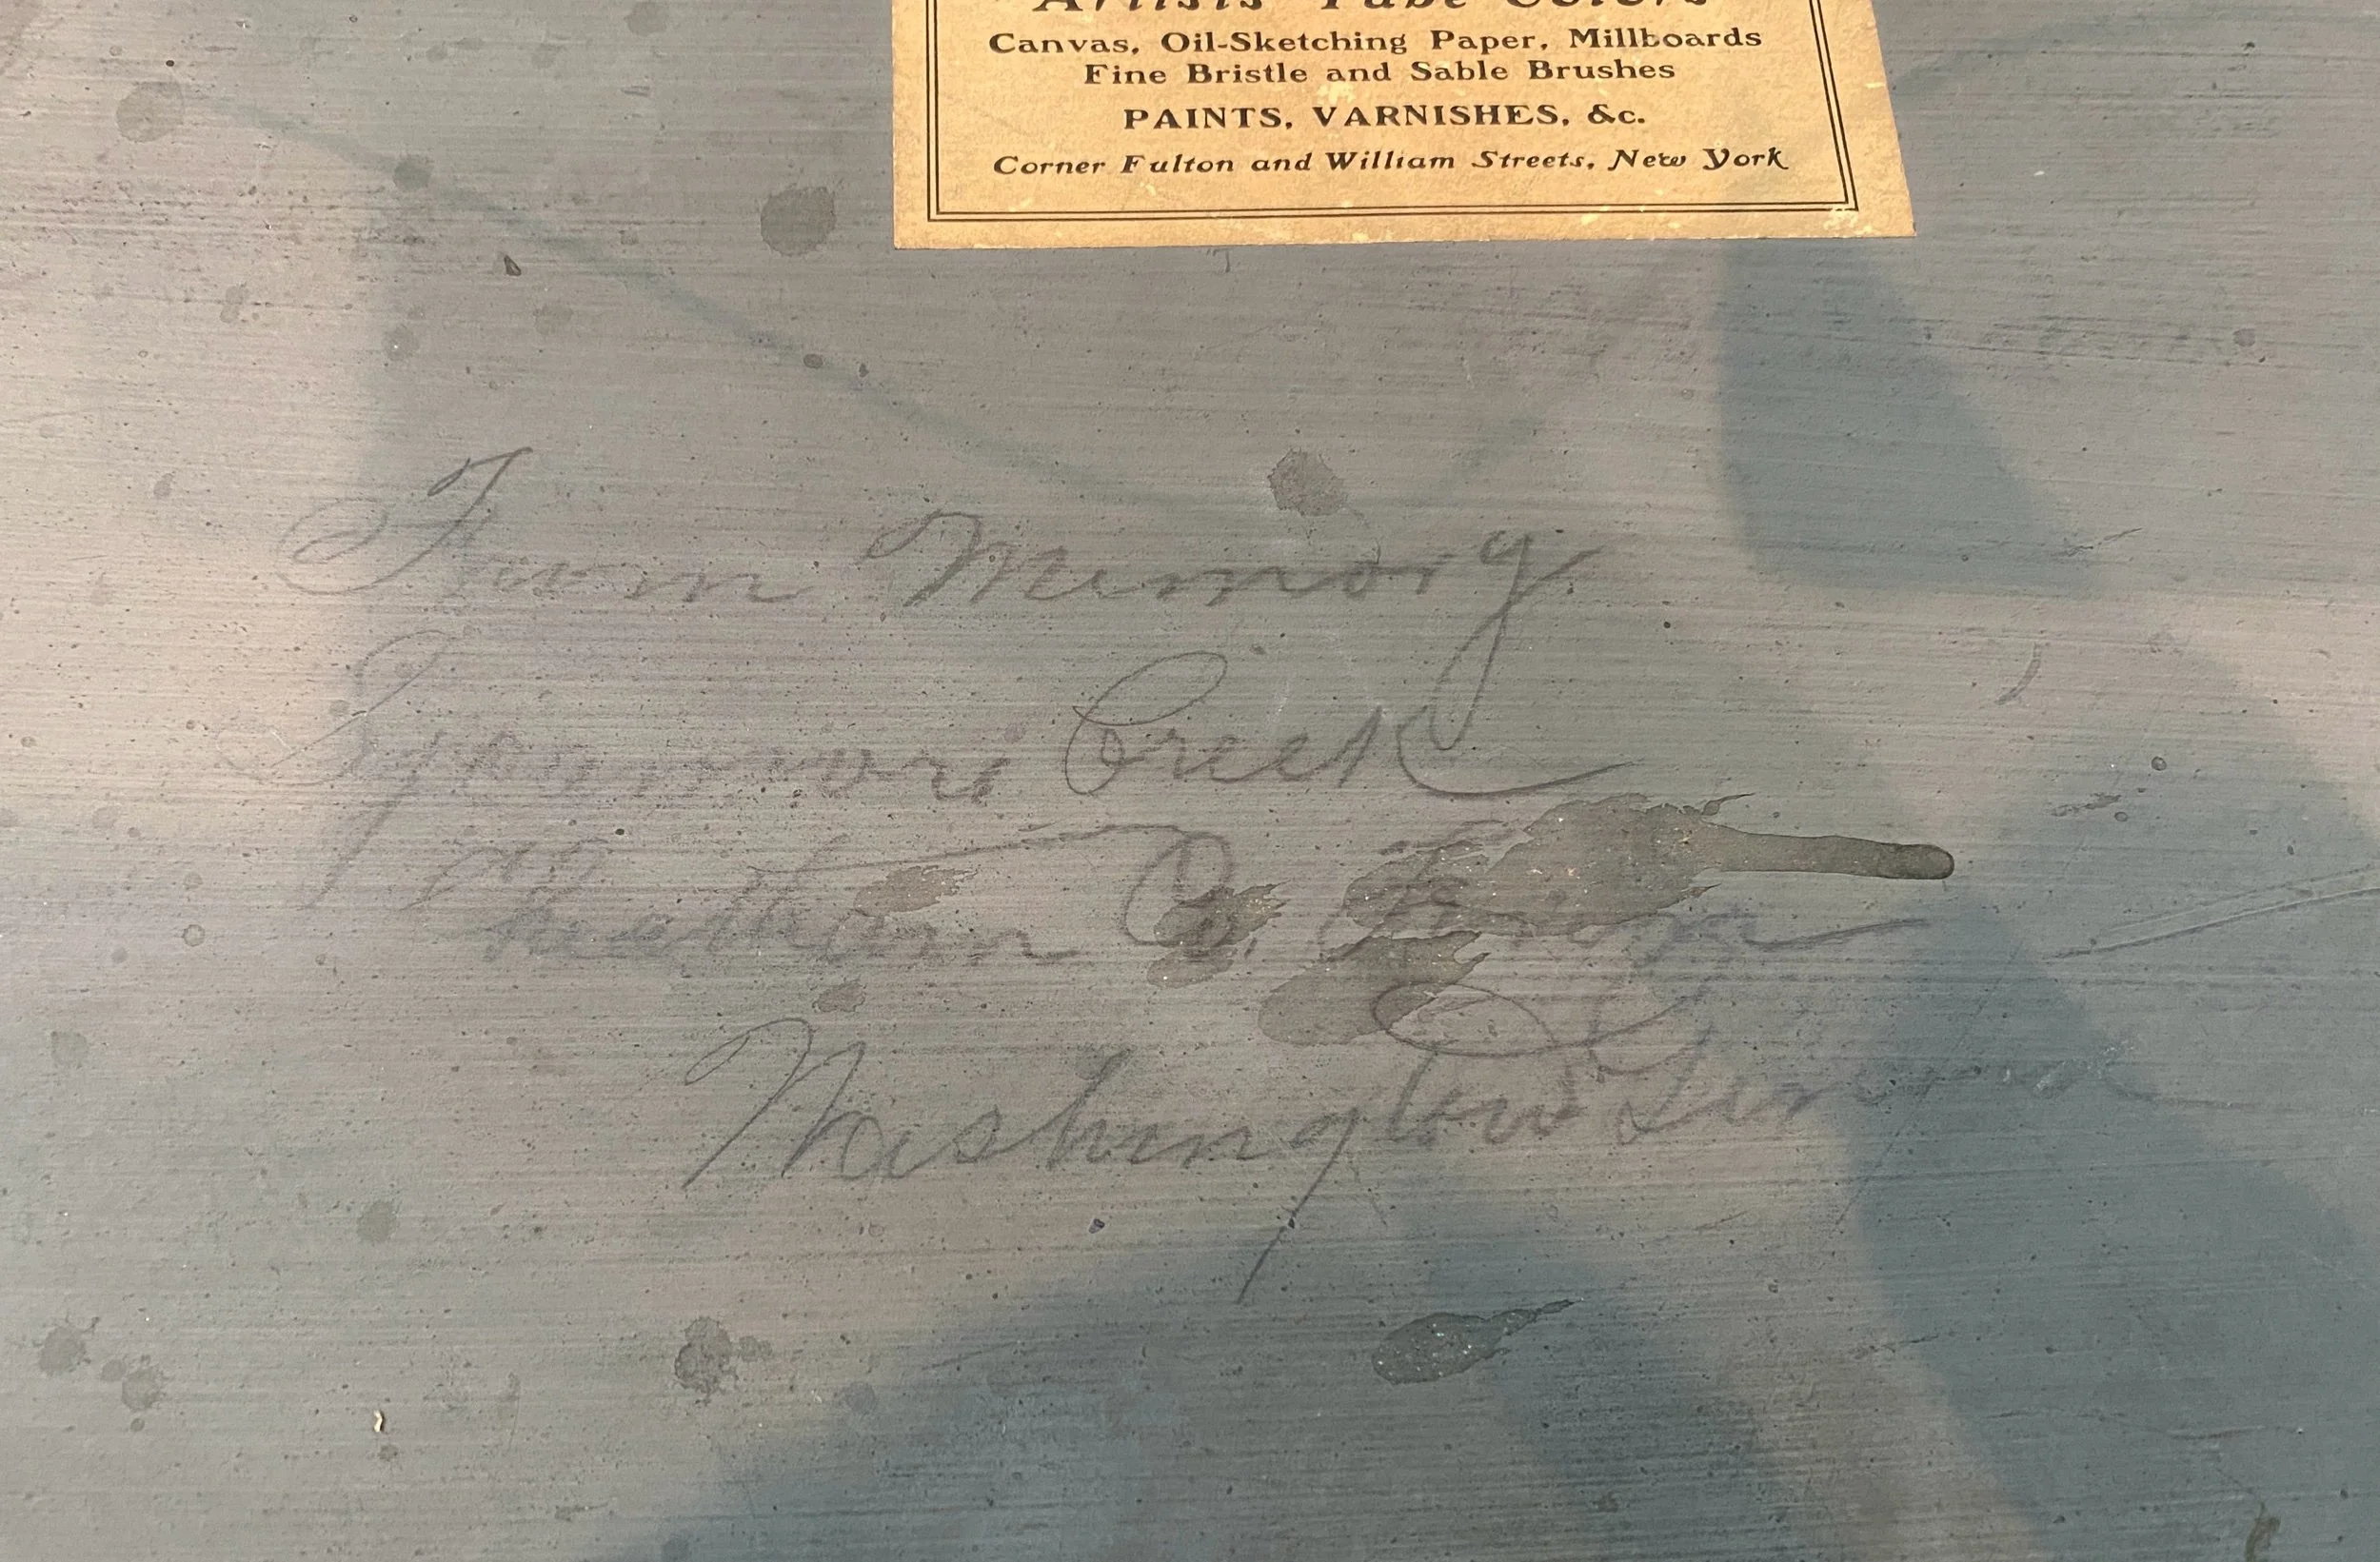 Artists' Tube Colors
Canvas, Oil-Sketching Paper, Millboards
Fine Bristle and Sable Brushes
PAINTS, VARNISHES, &c.
Corner Fulton and William Streets, New York
From Memory
Sycamore Creek
Cheatham Co. Tenn
Washington